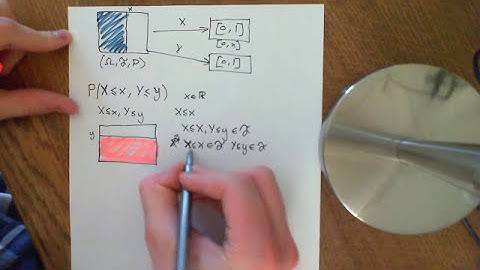 x
X
[0,1]
[0,x]
Y
[0,1]
(Ω, F, P)
P(X≤x, Y≤y) x∈ℝ
X≤x, Y≤y X≤x
X≤x, Y≤y ∈ F
y
X≤x ∈ F Y≤y ∈ F